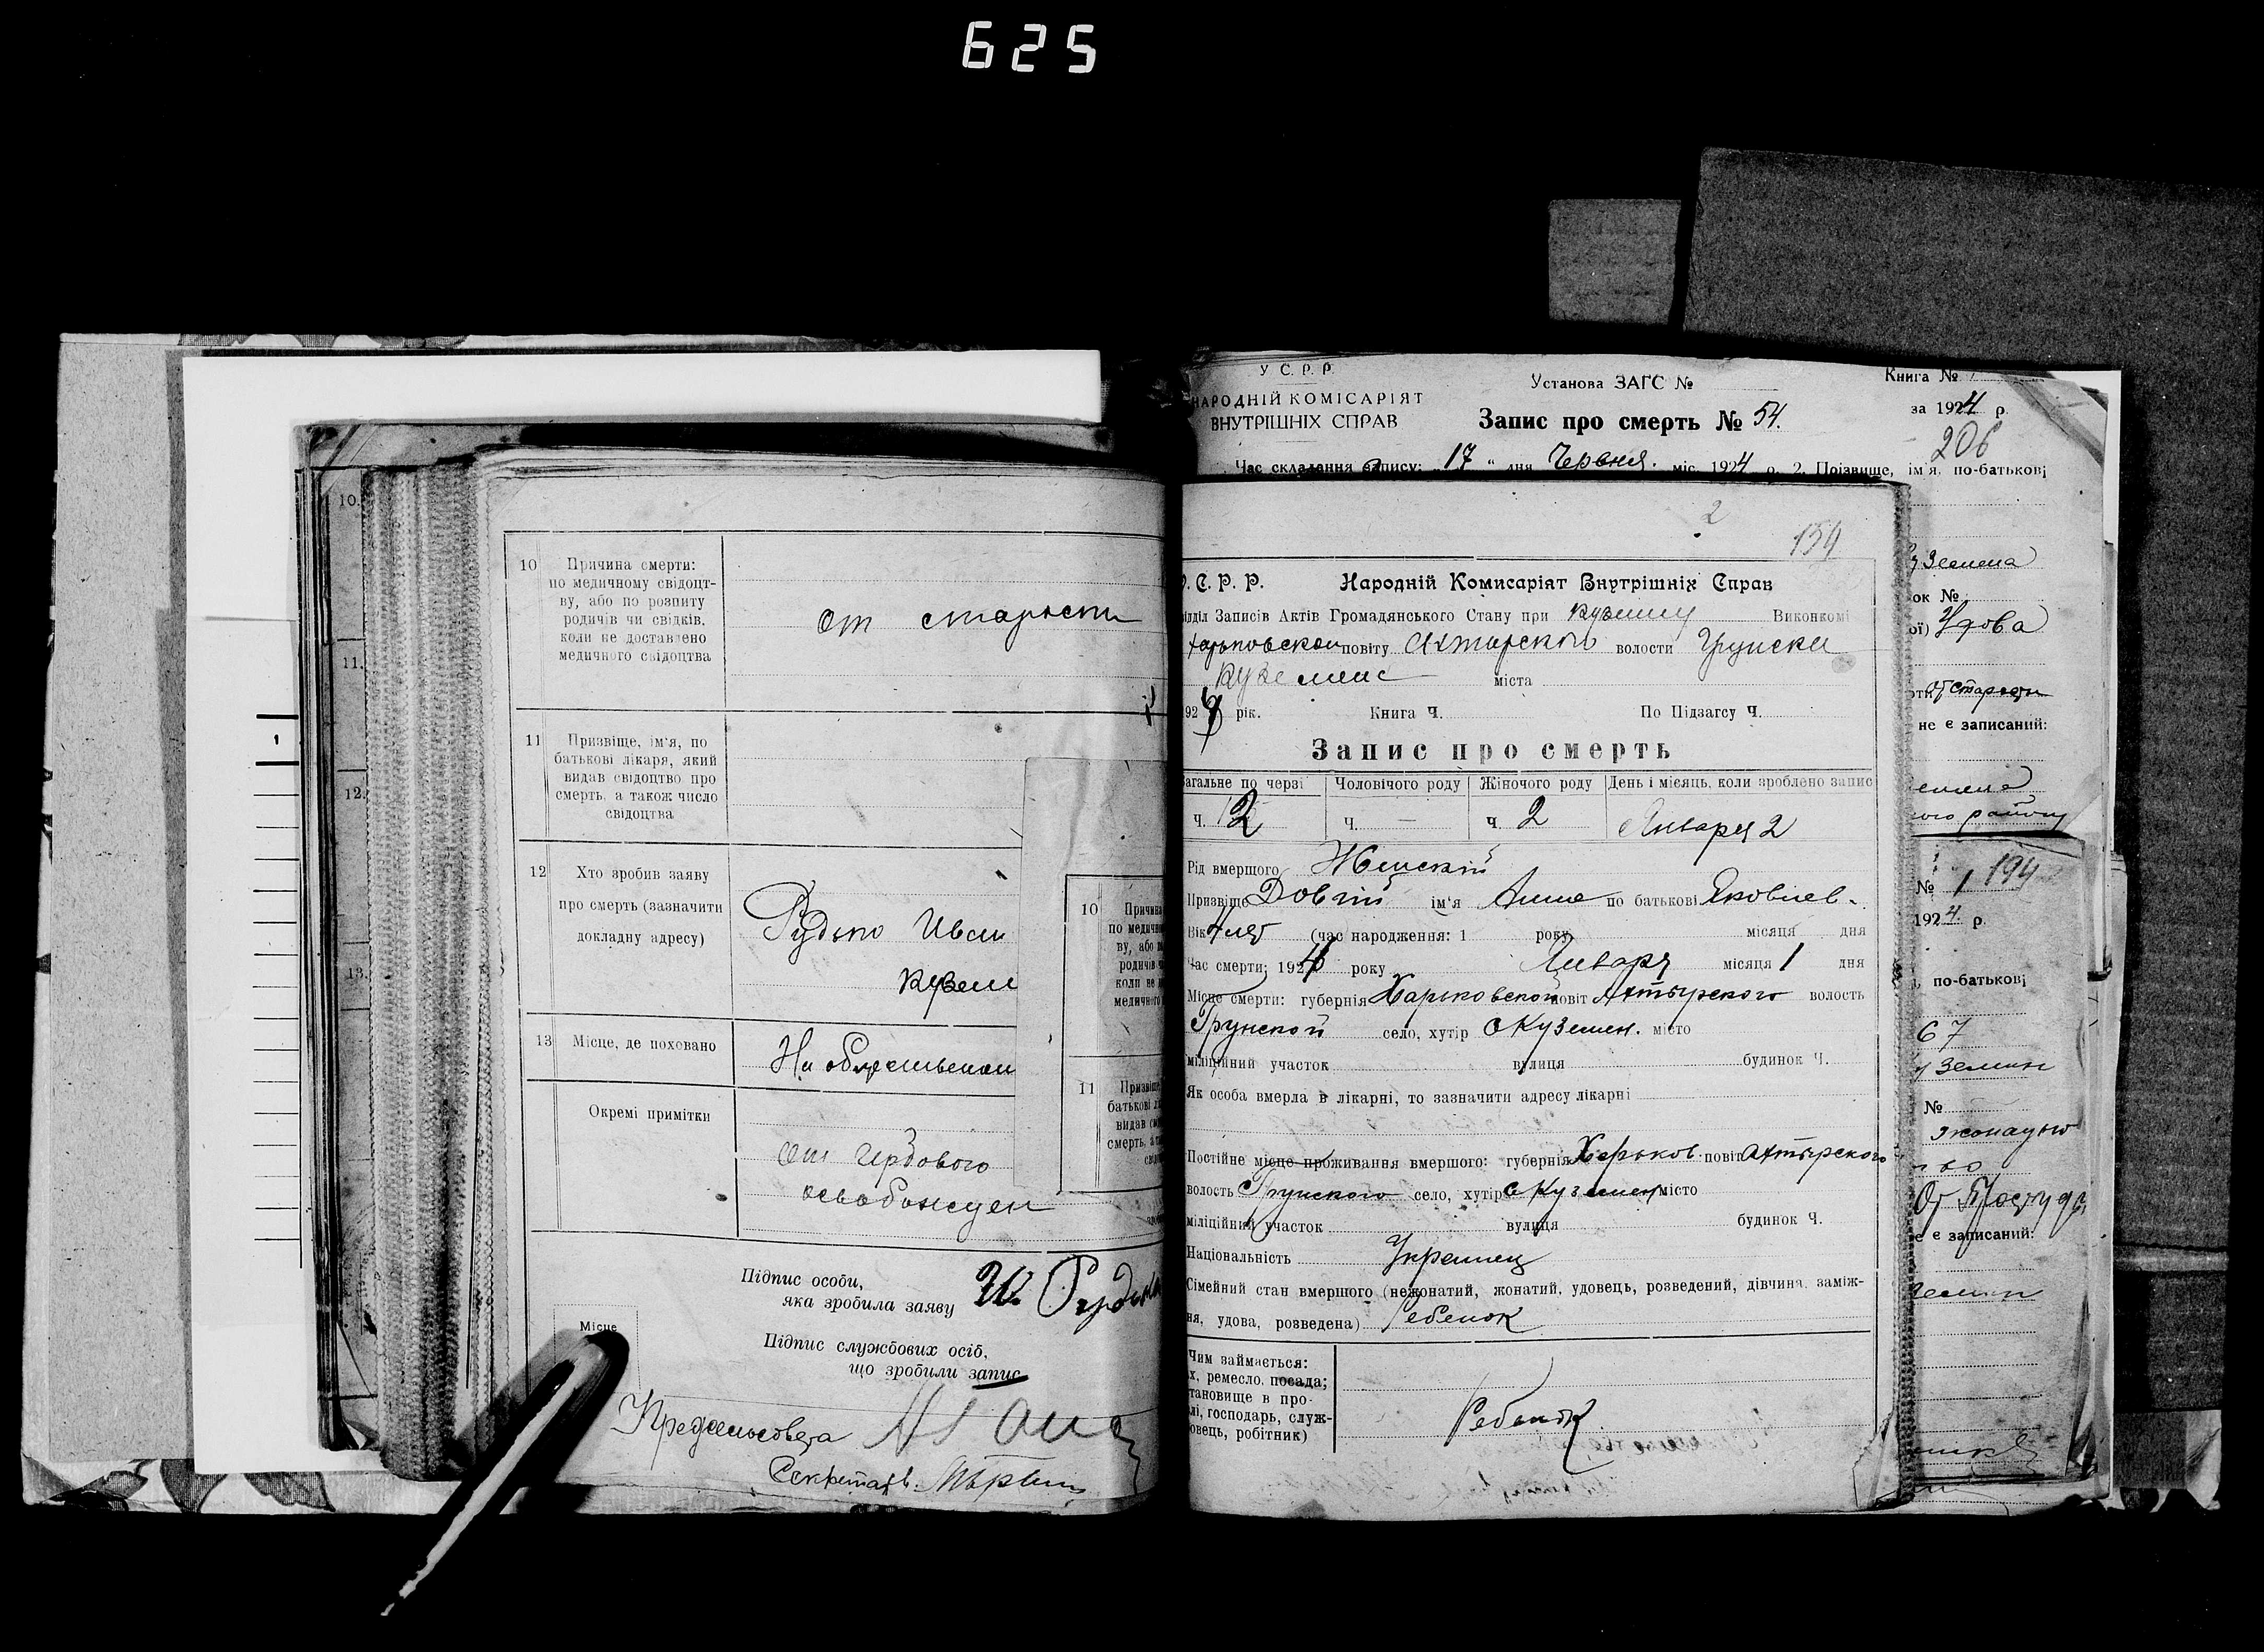 625
10
Причина смерти:
по медичному свідоцт-
ву, або по розпиту
родичів чи свідків,
коли не доставлено
медичного свідоцтва
От старости
11
Призвіще, ім'я, по
батькові лікаря, який
видав свідоцтво про
смерть, а також число
свідоцтва
12
Хто зробив заяву
про смерть (зазначити
докладну адресу)
Рудько Иван
Кузем
13
Місце, де поховано
На общественом
Окремі примітки
От
освобожден
Підпис особи,
яка зробила заяву
Підпис службових осіб,
що зробили запис
Місце
Предсельсовета
Секретарь
10.
11.
12.
13.
10
Причина
по медичн
ву, або
родичів
коли не
медичного
11
Призвіще
батькові
видав
смерть, а
У С. Р. Р.
НАРОДНІЙ КОМІСАРІЯТ
ВНУТРІШНІХ СПРАВ
Установа ЗАГС №
Запис про смерть № 54.
Книга №
за 1924 р.
206
Час складання запису: „17“ дня Червня. міс. 1924 р. 2. Прізвище, ім'я, по-батькові
2
154
С. Р. Р. Народній Комисаріят Внутрішніх Справ
ідділ Записів Актів Громадянського Стану при Виконкомі
Харьковской повіту Ахтирской волости Грунска
Куземенс міста
1924 рік. Книга Ч. По Підзагсу Ч.
Запис про смерть
Загальне по черзі Чоловічого роду Жіночого роду День і місяць, коли зроблено запис
ч. 2 Ч. — ч. 2 Января 2
Рід вмершого Женский
Призвіще Довгий ім'я Анна по батькові Яковлев.
Вік 4 лет (час народження: 1 року місяця дня
Час смерти: 1924 року Января місяця 1 дня
Місце смерти: губернія Харьковской повіт Ахтырского волость
Грунской село, хутір с Куземен. місто
міліційний участок вулиця будинок Ч.
Як особа вмерла в лікарні, то зазначити адресу лікарні
Постійне місце проживання вмершого: губернія Харьков. повіт Ахтырского
волость Грунского село, хутір с Куземен місто
міліційний участок вулиця будинок Ч.
Національність Украинец
Сімейний стан вмершого (нежонатий, жонатий, удовець, розведений, дівчина, заміж-
ня, удова, розведена) Ребенок
Чим займається:
х, ремесло, посада;
тановище в про-
лі, господарь, служ-
овець, робітник)
Ребенок
ок №
ої) Удова
не є записаний:
ого району
№ 1 194
1924 р.
по-батькові
67
№
От Простуды
е є записаний: